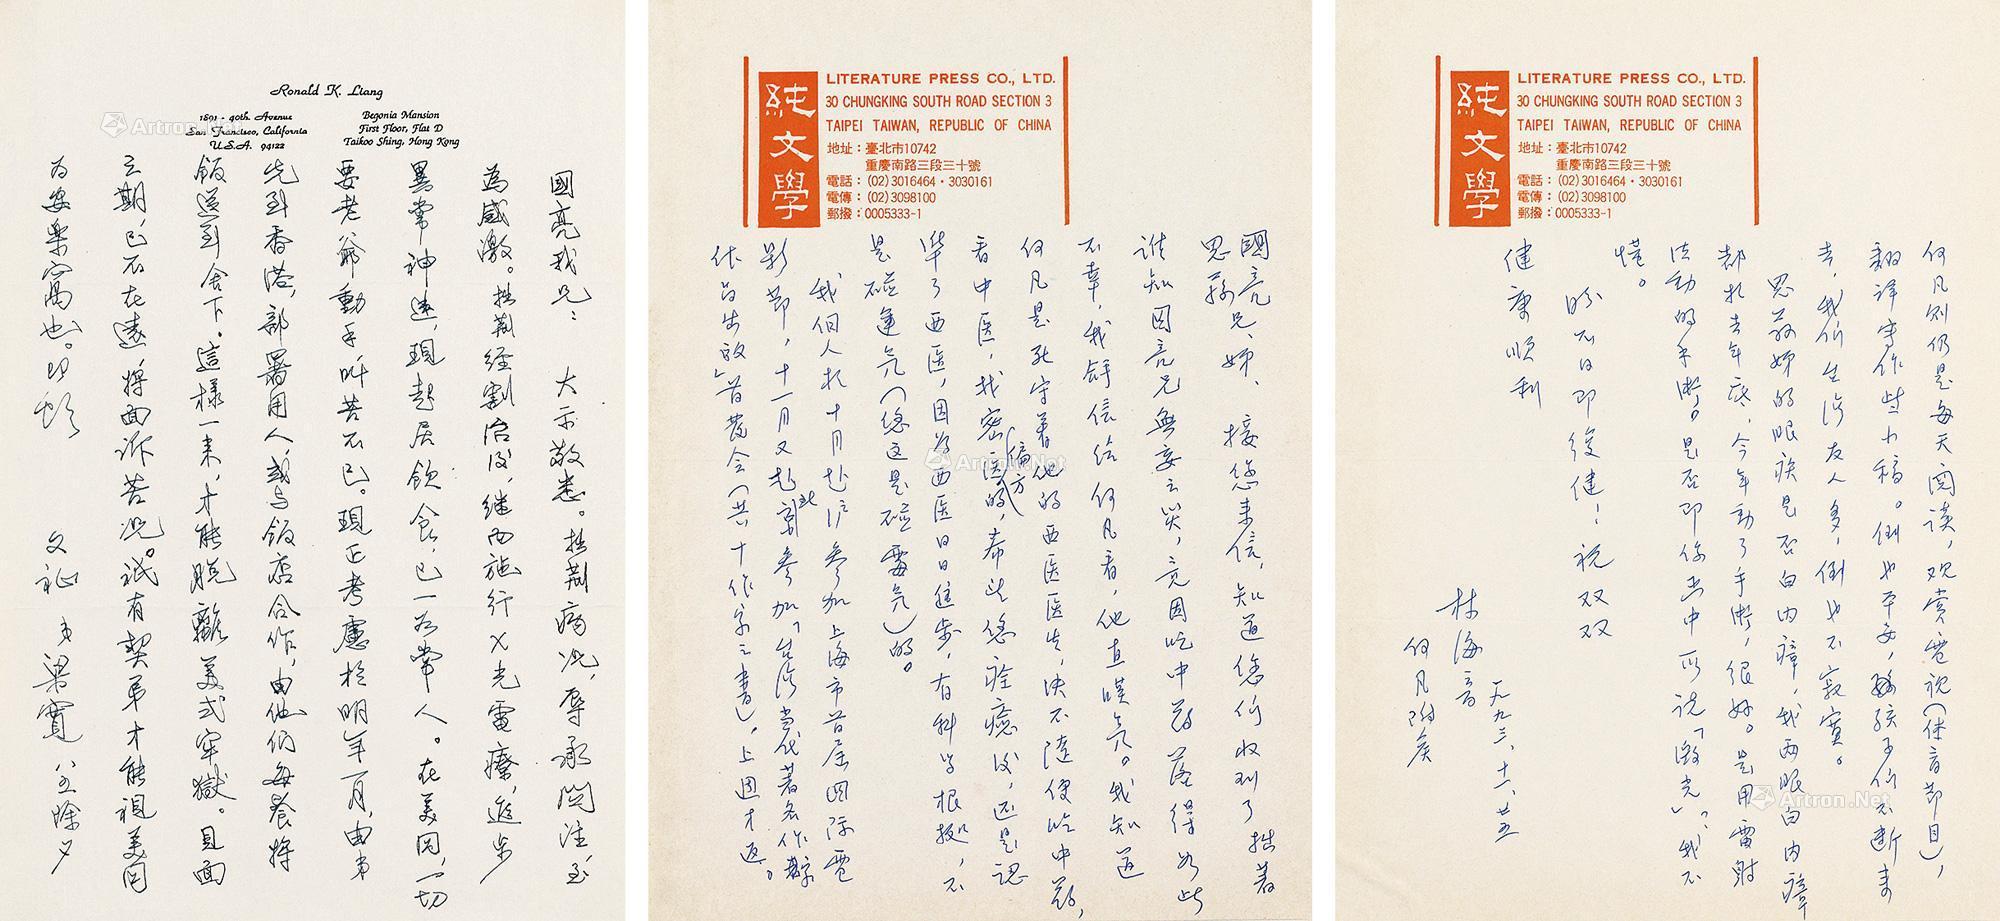 Ronald K. Liang
1891 - 40th. Avenue
San Francisco, California
U.S.A. 94122
Begonia Mansion
First Floor, Flat D
Taikoo Shing, Hong Kong
國亮我兄：大示敬悉。拙荊病況，辱承關注，至
為感激。拙荊經割治後，繼而施行X光電療，進步
異常神速，現起居飲食，已一如常人。在美國，一切
要老爺動手，叫苦不已。現正考慮於明年一月，由弟
先到香港，部署用人，或与飯店合作，由他们每餐将
飯送到舍下。這樣一来，才能脫離美式牢獄。見面
之期，已不在遠，将面訴苦况。诋有契弟才能視美国
为安樂窩也。即頌
文祉 弟梁寬 八五除夕
純文學
LITERATURE PRESS CO., LTD.
30 CHUNGKING SOUTH ROAD SECTION 3
TAIPEI TAIWAN, REPUBLIC OF CHINA
地址：臺北市10742
重慶南路三段三十號
電話：(02)3016464・3030161
電傳：(02)3098100
郵撥：0005333-1
國亮兄、姊 接您来信，知道您们收到了拙著
思蓀
誰知国亮兄無妄之災，竟因吃中药落得如此
不幸，我餙信给何凡看，他直嘆气。我知道
何凡是死守着他的西医医生，决不随便吃中药，
看中医，我密医的，希望您痊癒後，还是認
偏方
準了西医，因为西医日日進步，有科学根据，不
是碰運气（您这是碰霉气）的。
我個人於十月赴沪参加上海市首届国际電
影節，十一月又赴京参加「当代著名作家
北
作品出版」首發会（共十作家之書），上週才返。
純文學
LITERATURE PRESS CO., LTD.
30 CHUNGKING SOUTH ROAD SECTION 3
TAIPEI TAIWAN, REPUBLIC OF CHINA
地址：臺北市10742
重慶南路三段三十號
電話：(02)3016464・3030161
電傳：(02)3098100
郵撥：0005333-1
何凡则仍是每天閱读，欣赏電視（体育節目），
翻译寫作些小稿。倒也平安，孩子们不断来
去，我们生活友人多，倒也不寂寞。
思蓀姊的眼疾是否白内障，我两眼白内障
都於去年底、今年動了手術，很好。是用雷射
活動的手術。是否即你出中所说「激光」？我不
懂。
盼不日即復健！祝双双
健康順利
林海音
何凡附矣
一九九三、十一、廿五